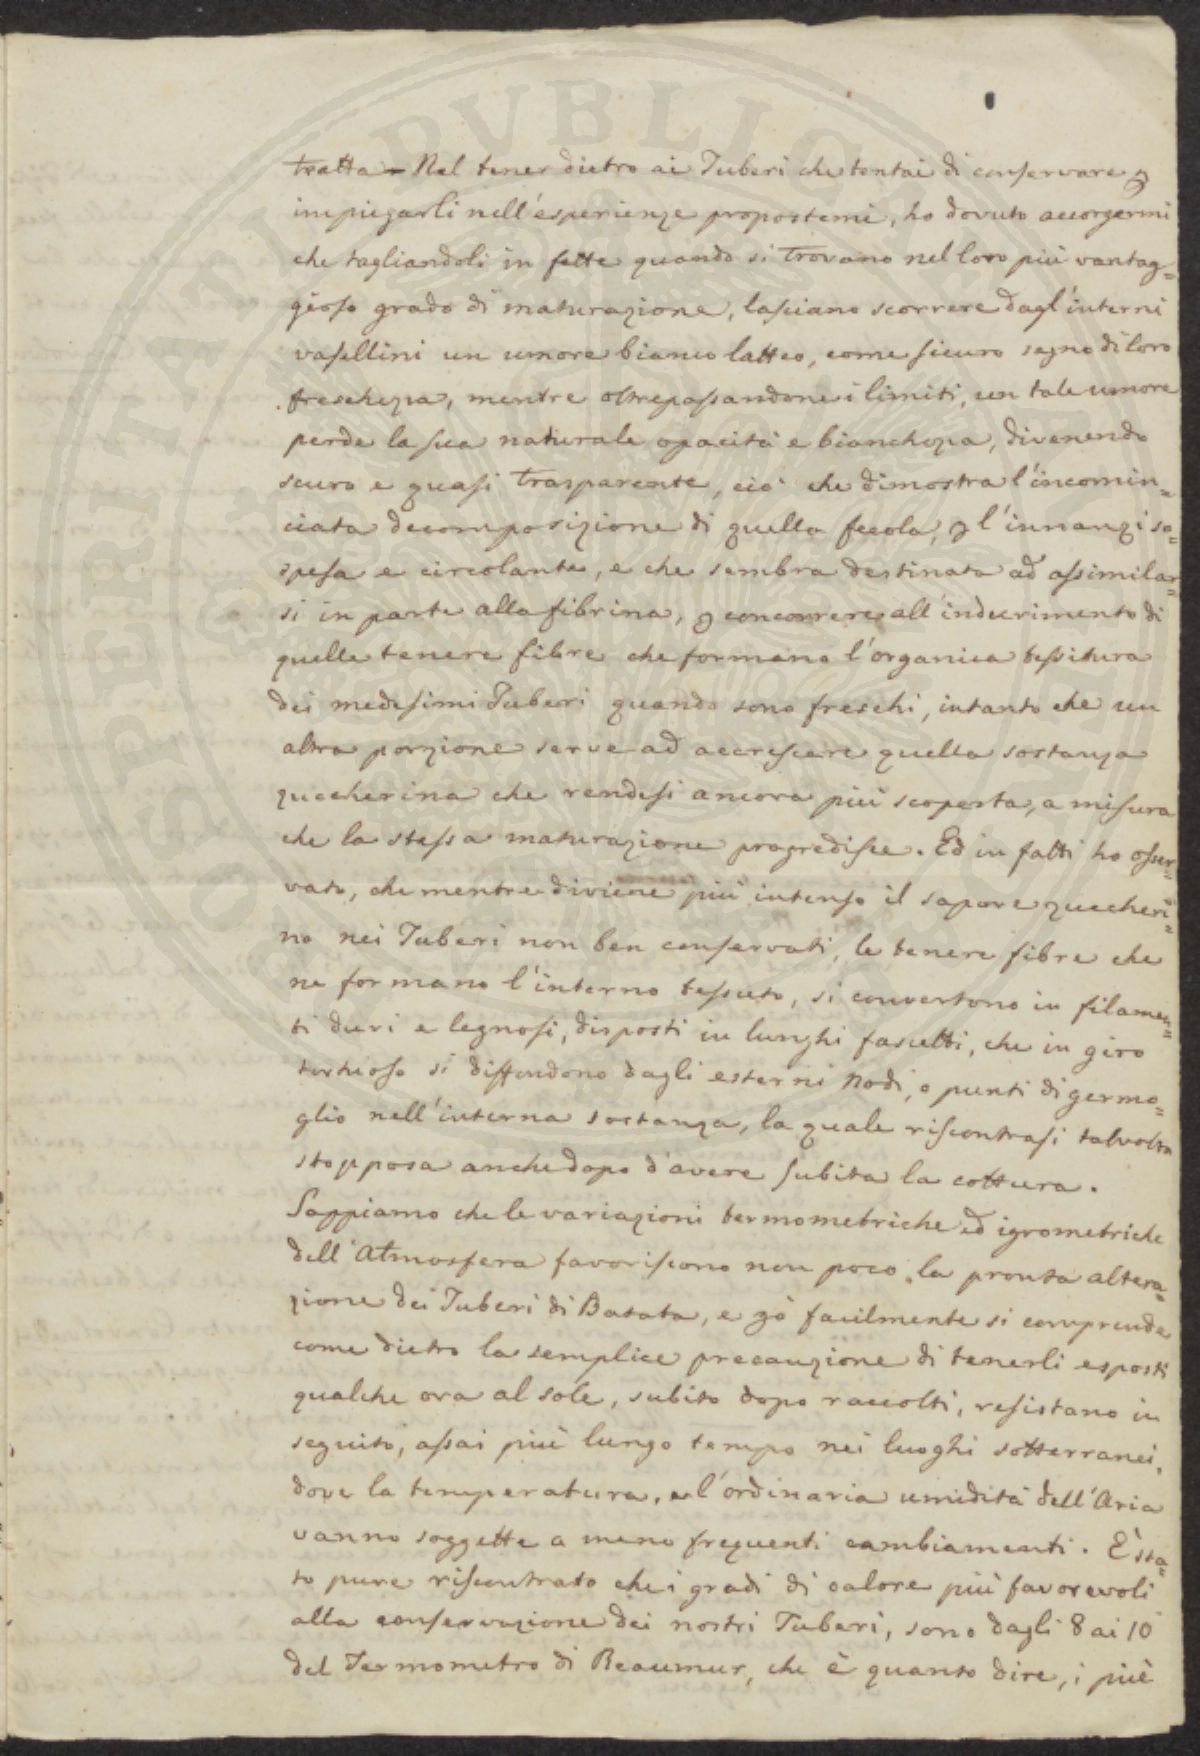 tratta = Nel tener dietro ai Tuberi che tentai di conservare p
impiegarli nell'esperienze propostemi, ho dovuto accorgermi
che tagliandoli in fette quando si trovano nel loro più vantag=
gioso grado di maturazione, lasciano scorrere dagl'interni
vasellini un umore bianco latteo, come sicuro segno di loro
freschezza, mentre oltrepassandone i limiti, un tale umore
perde la sua naturale opacità e bianchezza, divenendo
scuro e quasi trasparente, ciò che dimostra l'incomin=
ciata decomposizione di quella fecola, p l'innanzi so=
spesa e circolante, e che sembra destinata ad assimilar=
si in parte alla fibrina, p concorrere all'indurimento di
quelle tenere fibre che formano l'organica tessitura
dei medesimi Tuberi quando sono freschi, intanto che un
altra porzione serve ad accrescere quella sostanza
zuccherina che rendesi ancora più scoperta, a misura
che la stessa maturazione progredisce. Ed in fatti ho osser=
vato, che mentre diviene più intenso il sapore zuccheri=
no nei Tuberi non ben conservati, le tenere fibre che
ne formano l'interno tessuto, si convertono in filamen=
ti duri e legnosi, disposti in lunghi fascetti, che in giro
tortuoso si diffondono dagli esterni nodi, o punti di germo=
glio nell'interna sostanza, la quale riscontrasi talvolta
stopposa anche dopo d'avere subita la cottura.
Sappiamo che le variazioni termometriche ed igrometriche
dell'Atmosfera favoriscono non poco la pronta altera=
zione dei Tuberi di Batata, e pò facilmente si comprende
come dietro la semplice precauzione di tenerli esposti
qualche ora al sole, subito dopo raccolti, resistano in
seguito, assai più lungo tempo nei luoghi sotterranei,
dove la temperatura, e l'ordinaria umidità dell'Aria
vanno soggette a meno frequenti cambiamenti. È sta=
to pure riscontrato che i gradi di calore più favorevoli
alla conservazione dei nostri Tuberi, sono dagli 8 ai 10
del Termometro di Reaumur, che è quanto dire, i più